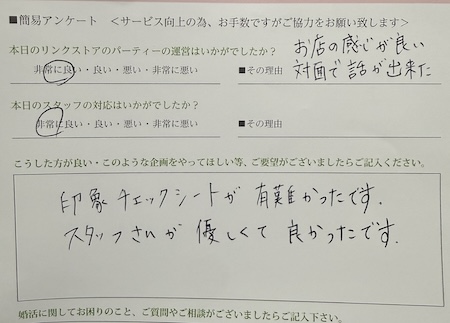 ■簡易アンケート <サービス向上の為、お手数ですがご協力をお願い致します>
本日のリンクストアのパーティーの運営はいかがでしたか？ お店の感じが良い
非常に良い・良い・悪い・非常に悪い ■その理由 対面で話が出来た
本日のスタッフの対応はいかがでしたか？
非常に良い・良い・悪い・非常に悪い ■その理由
こうした方が良い・このような企画をやってほしい等、ご要望がございましたらご記入ください。
印象チェックシートが有難かったです.
スタッフさんが優しくて良かったです.
婚活に関してお困りのこと、ご質問やご相談がございましたらご記入下さい。